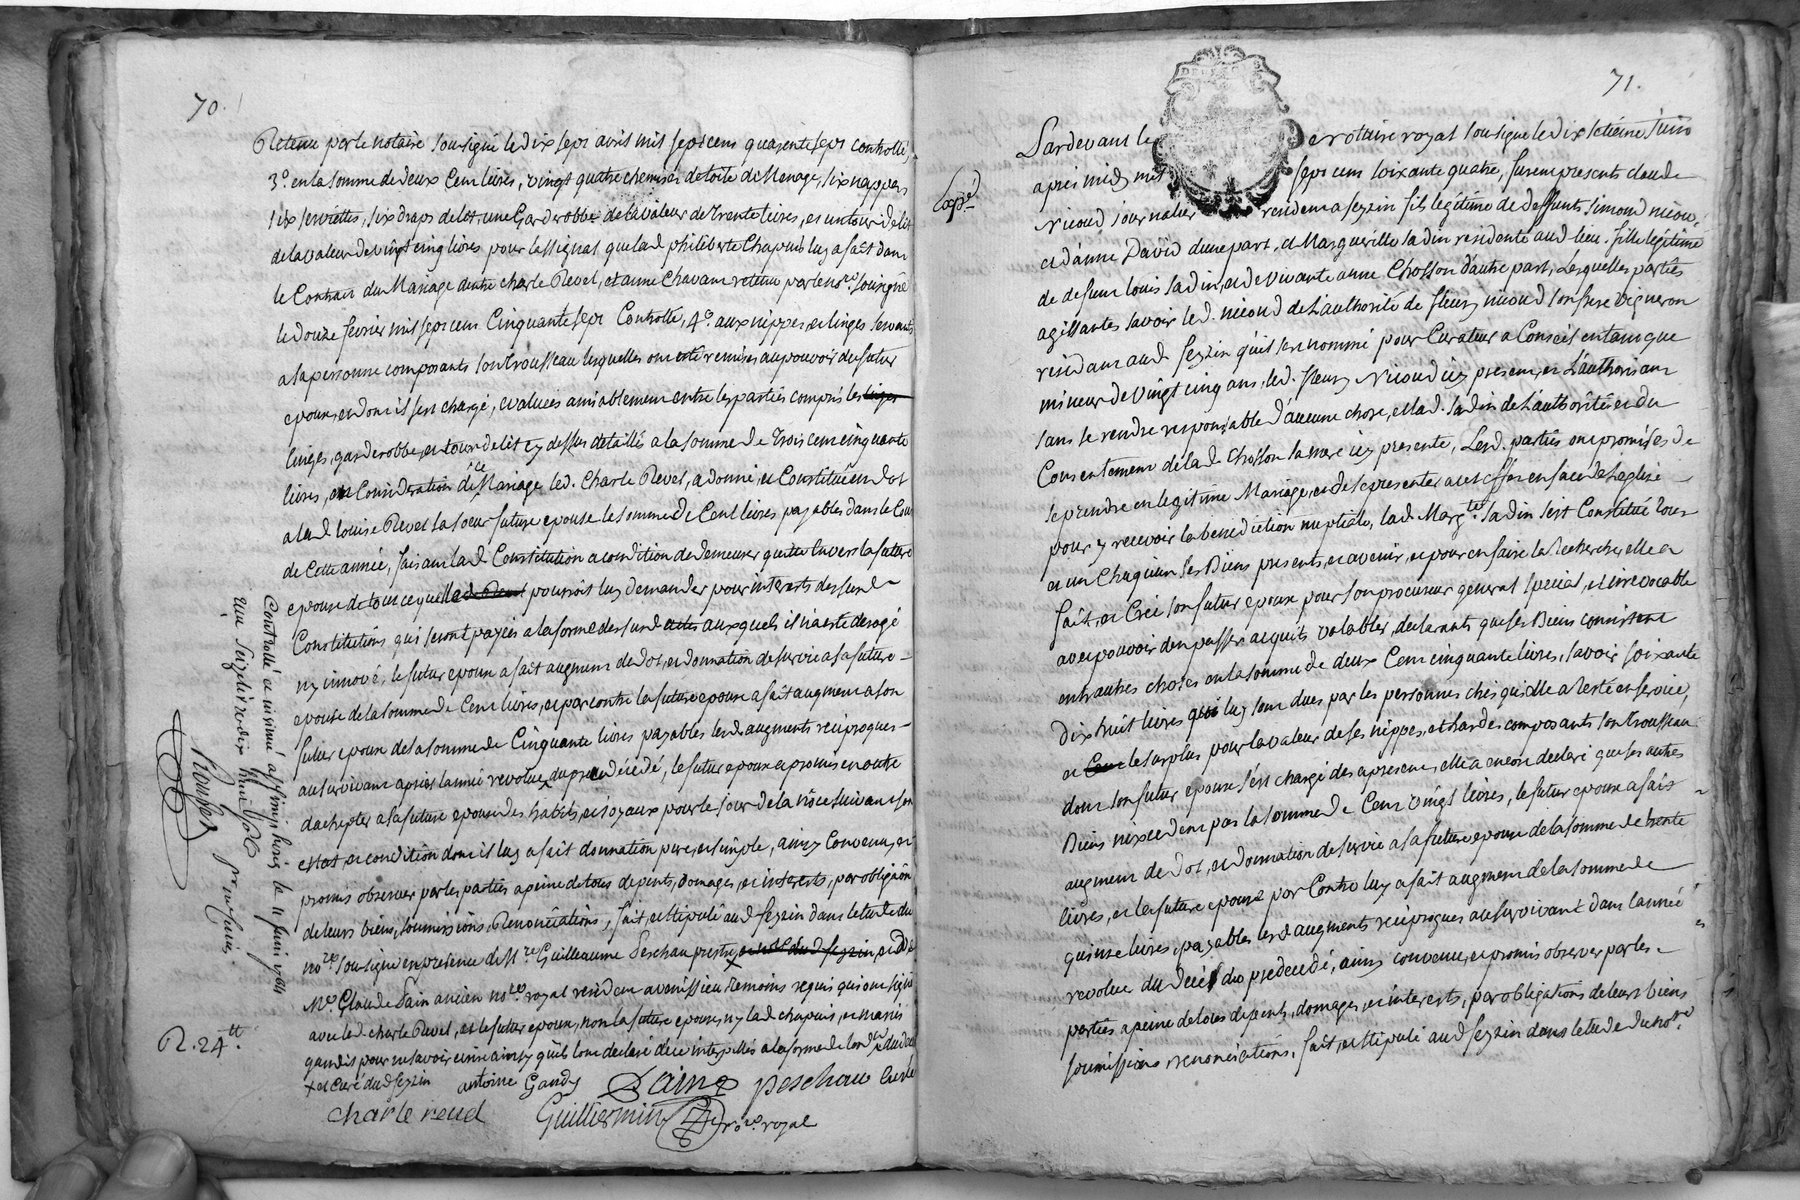 70.
Retenu par le notaire soussigné le dix sept avril mil sept cens quarente sept controllé,
3.º en la somme de deux Cent livres, vingt quatre chemises de toile de Menage, six nappes
six serviettes, six draps de lit, une Garderobbe de la valeur de Trente livres, et un tour de lit
de la valeur de vingt cinq livres pour l'assignat que lad. philiberte Chapuis luy a fait dans
le Contrat du Mariage d'entre charle Revel, et anne Chavant retenu par le no.re soussigné
le douze fevrier mil sept cent Cinquante sept Controllé, 4.º aux nippes, et linges servants
a sa personne composants son Trousseau lesquelles ont esté remises au pouvoir du futur
epoux, et dont il s'est chargé, evaluées amiablement entre les parties compris les linges
linges, garderobbe, et tour de lit cy dessus detaillés a la somme de Trois cent cinquante
livres, en Consideration de ce Mariage led. Charle Revel, a donné, et Constitué en dot
a lad. louise Revel sa soeur future epouse la somme de Cent livres payables dans le Cour
de Cette année, faisant lad. Constitution a condition de demeurer quitte envers la future
epouse de tout ce quelle pourroit luy demander pour interets desusd.
Constitutions qui seront payées a la forme desusd. actes auxquels il n'a esté derogé
ny innové, le futur epoux a fait augment de dot, et donnation de survie a sa future
epouse de la somme de Cent livres, et par contre la future epouse a fait augment a son
futur epoux de la somme de Cinquante livres payables lesd. augments reciproques
au survivant après l'année revolue du predécédé, le futur epoux a promis en outre
d'achepter a sa future epouse des habits, et joyaux pour le jour de la nôce suivant son
estat, et condition dont il luy a fait donnation pure, et simple, ainsy Convenu, et
promis observer par les parties a peine de tous depents, domages, et interests, par obligaôn
de leurs biens, soumissions, Renonciations, fait, et stipulé aud. seyzin dans l'etude du
no.re soussigné en presence de M.re Guilleaume Peschau prestre, et de
M.e Claude Pain ancien no.re royal resident a vernissieu Temoins requis qui ont signé
avec led. charle Revel, et le futur epoux, non la future epouse, ny lad. chapuis, et mariés
gandis pour ne savoir ecrire ainsy qu'ils l'ont declaré de ce interpellés a la forme de lord.ce
+ et curé dud. seyzin antoine Gandy Pain Peschau Curé
charle revel Guillermin no.re royal
Controllé et insinué a st simph. le 11 juin 1764
Reçu Seize livres dix huit sols
Rougher
R. 24.tt
71.
Pardevant le notaire royal soussigné le dix setiéme Juin
Expé.
apres midy mil sept cent soixante quatre, furent presents claude
Nicoud journalier resident a seyzin fils légitime de deffunts simond nicoud
et d'anne David d'une part, et Margueritte Jadin residente aud. lieu, fille légitime
de defunt louis Jadin, et de vivante anne Chosson d'autre part, Lesquelles parties
agissantes savoir led. nicoud de l'authorité de fleury nicoud son frere vigneron
residant aud. seyzin qu'il s'est nommé pour Curateur a Conseil en tant que
mineur de vingt cinq ans, led. fleury Nicoud icy present, et L'authorisant
sans se rendre responsable d'aucune chose, et lad. Jadin de L'authorité, et du
Consentement de lad. Chosson sa mere icy presente, Lesd. parties ont promises de
se prendre en legitime Mariage, et de se presenter a cet effet en face de L'eglise
pour y recevoir la benediction nuptiale, lad. Marg.te Jadin s'est Constitué Tous
et un Chaquun ses Biens presents, et avenir, et pour en faire la Recherche, elle a
fait, et Créé son futur epoux pour son procureur general special, et irrevocable
avec pouvoir d'en passer acquits valables, declarants que ses Biens consistent
entr'autres choses en la somme de deux Cent cinquante livres, savoir soixante
dix huit livres qui luy sont dues par les personnes chés qui elle a resté en service,
et le surplus pour la valeur de ses nippes, et hardes composants son Trousseau
dont son futur epoux s'est chargé des apresent, elle a encore declaré que ses autres
Biens n'excedent pas la somme de Cent vingt livres, le futur epoux a fait
augment de dot, et donnation de survie a sa future epouse de la somme de trente
livres, et la future epouse par Contre luy a fait augment de la somme de
quinze livres, payables lesd. augments reciproques au survivant dans l'année
revolue du decés du predecedé, ainsy convenu, et promis observer par les
parties a peine de tous depents, domages, et interests, par obligations de leurs biens
soumissions renonciations, fait, et stipulé aud. seyzin dans l'etude du no.re